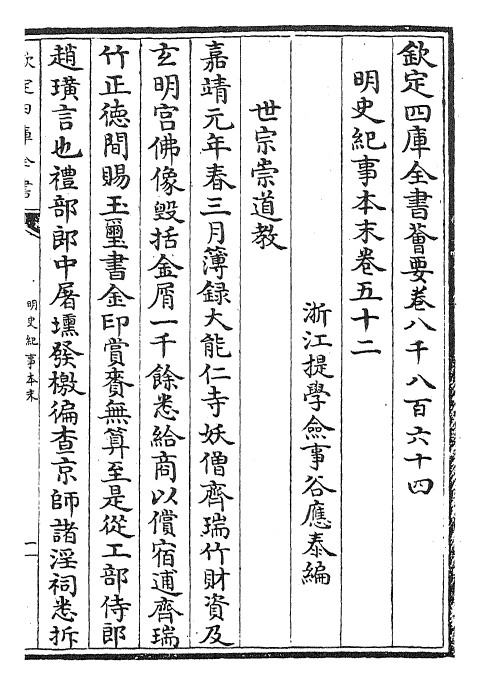 欽定四庫全書薈要卷八千八百六十四
明史紀事本末卷五十二
浙江提學僉事谷應泰編
世宗崇道教
嘉靖元年春三月簿錄大能仁寺妖僧齊瑞竹財資及
玄明宫佛像毀括金屑一千餘悉給商以償宿逋齊瑞
竹正德間賜玉璽書金印賞賚無算至是從工部侍郎
趙璜言也禮部郎中屠壎發檄徧查京師諸淫祠悉拆
欽定四庫全書
明史紀事本末
一